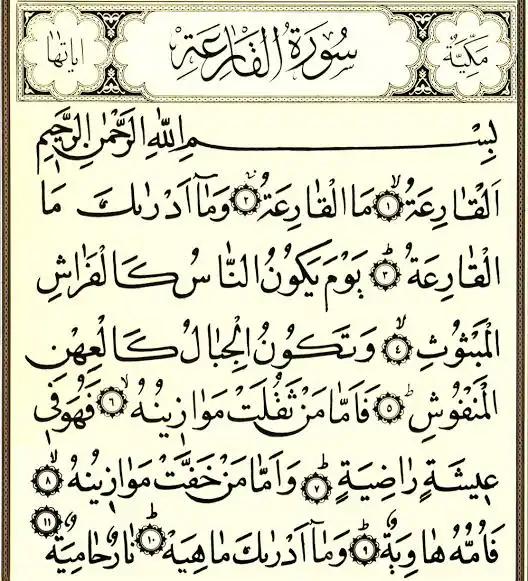 مَكِّيَّة سُورَةُ الْقَارِعَةِ اٰيَاتُهَا
بِسْمِ اللّٰهِ الرَّحْمٰنِ الرَّحِيمِ
اَلْقَارِعَةُ ۙ ﴿١﴾ مَا الْقَارِعَةُ ۚ ﴿٢﴾ وَمَٓا اَدْرٰيكَ مَا
الْقَارِعَةُ ۜ ﴿٣﴾ يَوْمَ يَكُونُ النَّاسُ كَالْفَرَاشِ
الْمَبْثُوثِ ۙ ﴿٤﴾ وَتَكُونُ الْجِبَالُ كَالْعِهْنِ
الْمَنْفُوشِ ۜ ﴿٥﴾ فَاَمَّا مَنْ ثَقُلَتْ مَوَازِينُهُ ۙ ﴿٦﴾ فَهُوَ فِي
عِيشَةٍ رَاضِيَةٍ ۜ ﴿٧﴾ وَاَمَّا مَنْ خَفَّتْ مَوَازِينُهُ ۙ ﴿٨﴾
فَاُمُّهُ هَاوِيَةٌ ۜ ﴿٩﴾ وَمَٓا اَدْرٰيكَ مَا هِيَهْ ۜ ﴿١٠﴾ نَارٌ حَامِيَةٌ ﴿١١﴾